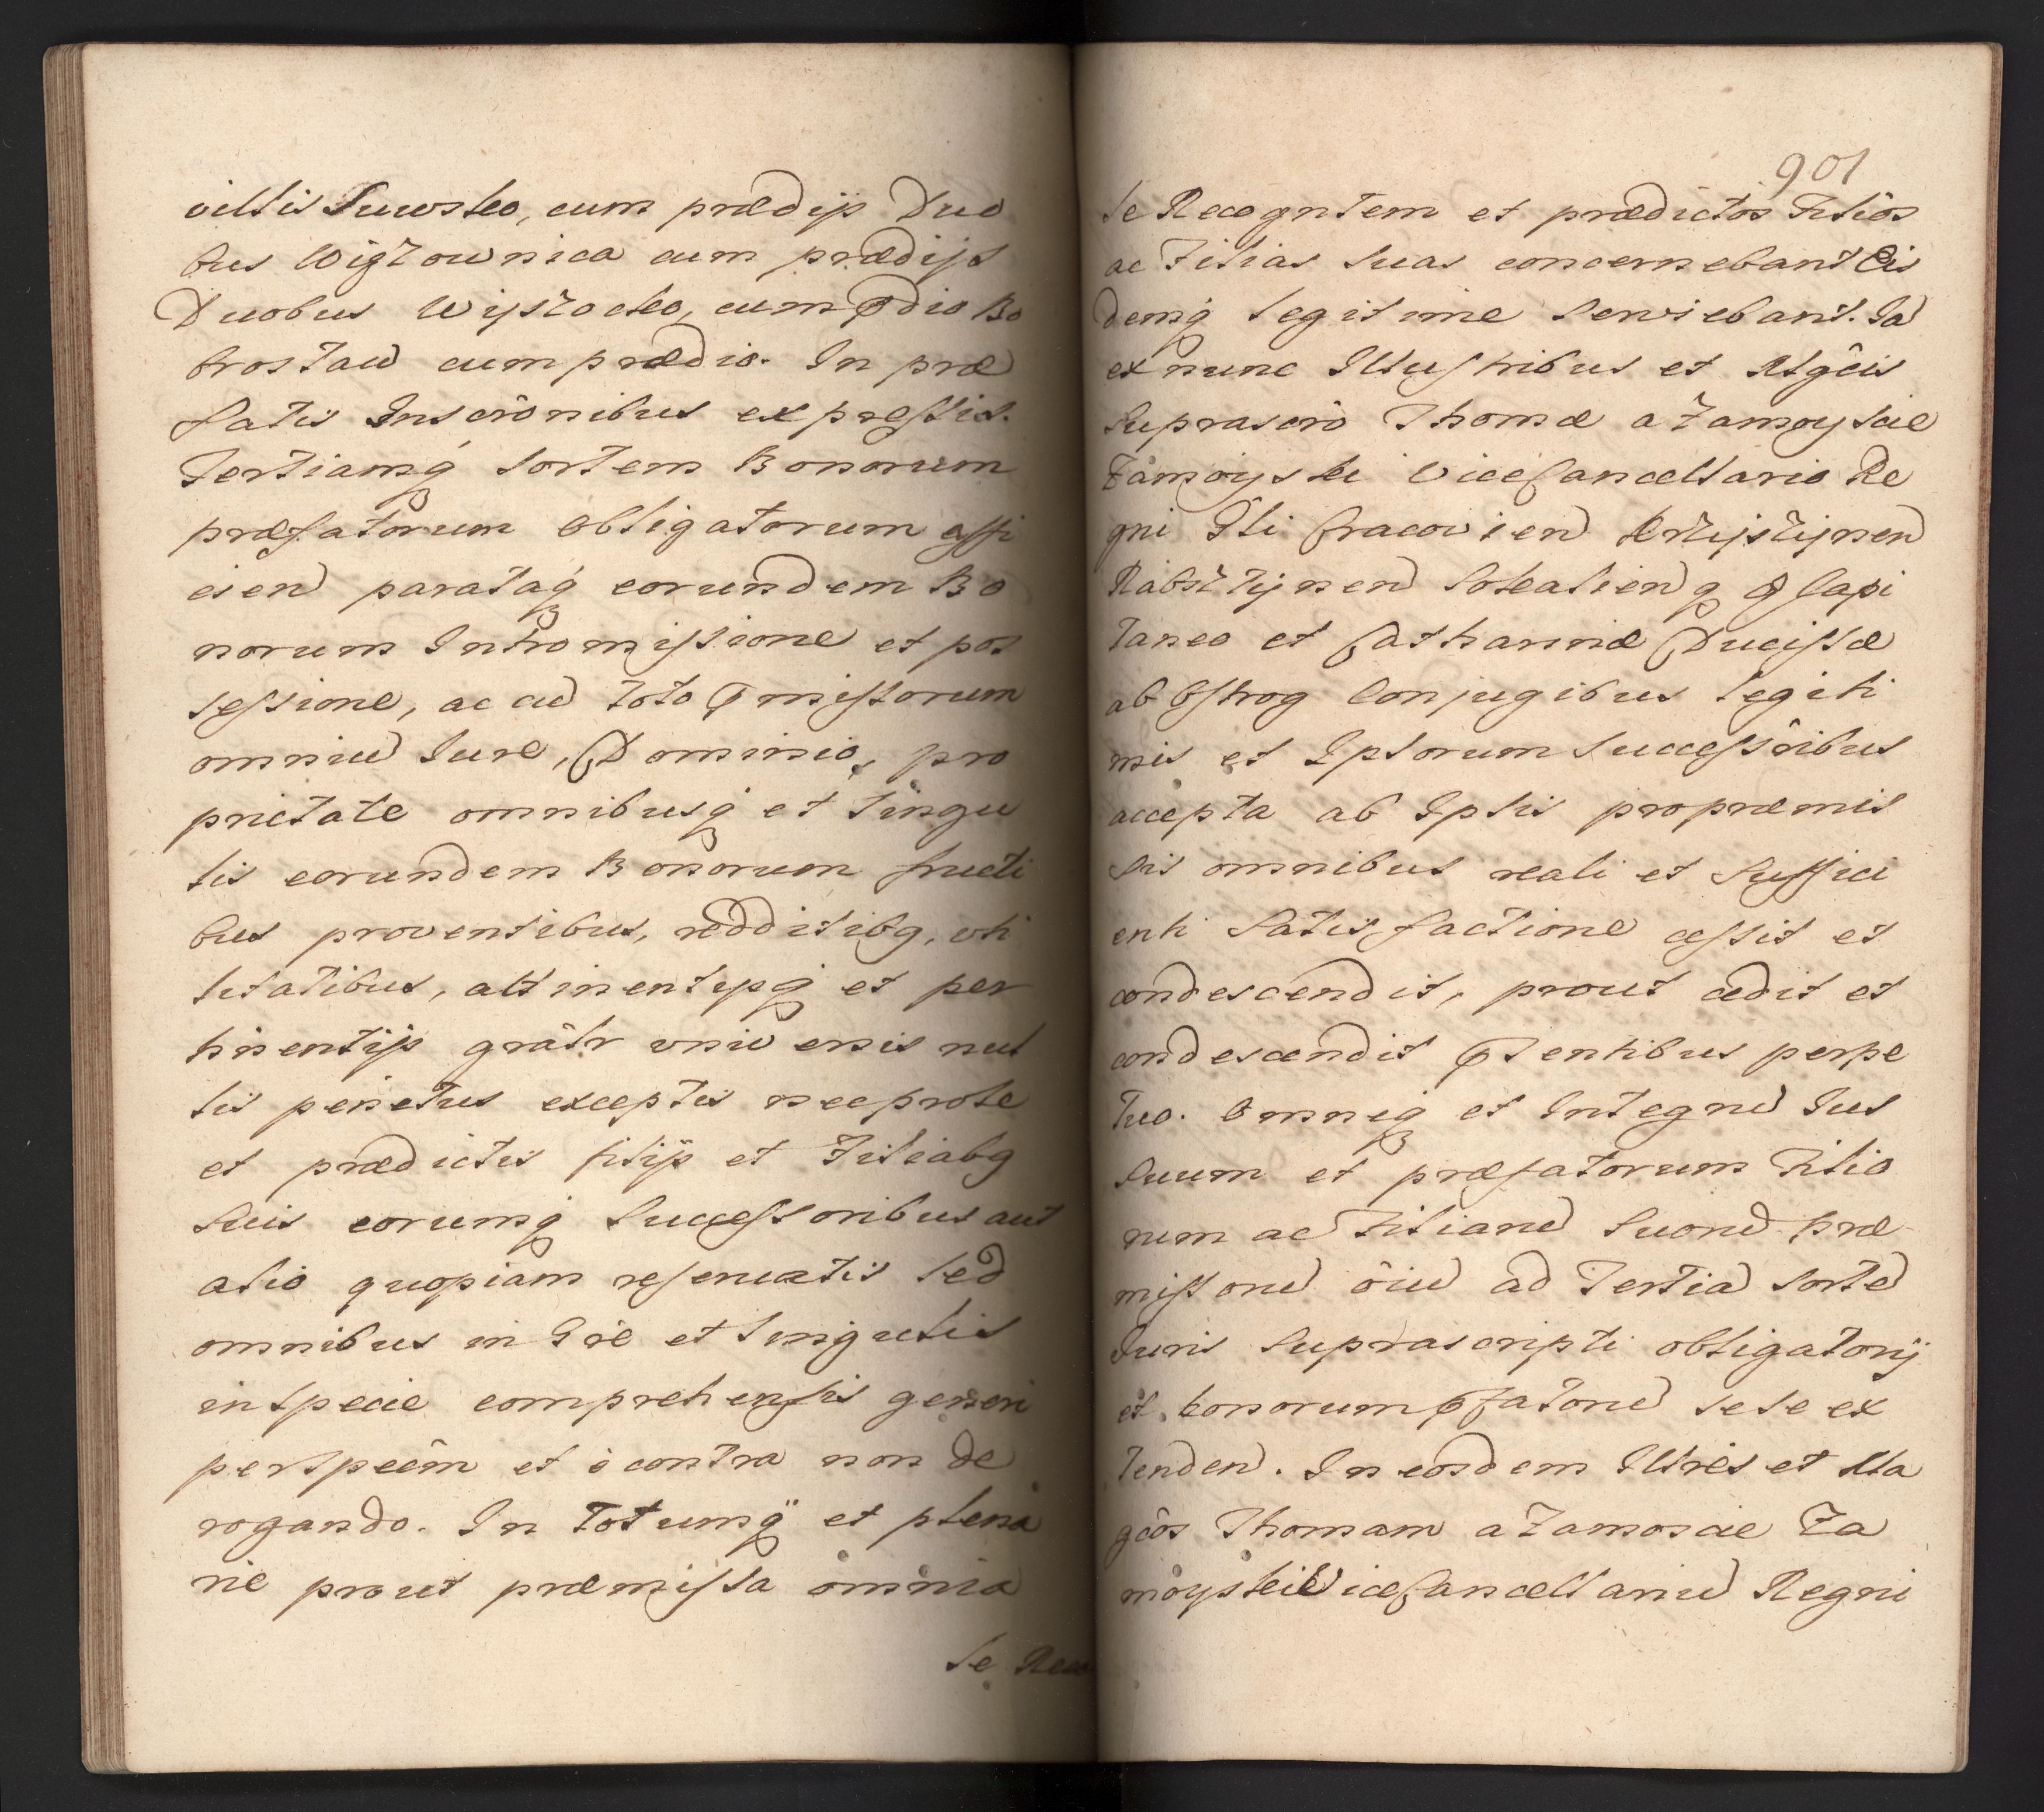 villis Suwsko, cum prædijs Duo
bus Wigzownica cum prædijs
Duobus Wyszocko, cum pdio Bo
brostaw cum prædio. In præ
fatis Inscrônibus expressis.
Tertiamq sortem Bonorum
præfatorum obligatorum affi
cien parataq eorundem Bo
norum Intromissione et pos
sessione, ac ad toto pmissorum
omniu Iure, Dominio, pro
prietate omnibusq et singu
lis eorundem Bonorum fructi
bus proventibus, redditibq, uti
litatibus, attinentysq et per
tinentijs grãlr univ ersis nul
lis penetus exceptis nec prole
et prædictis filijs et Filiabq
suis eorumq Successoribus aut
alio quopiam reseruatis sed
omnibus in Gre et singulis
in specie comprehensis geñeri
per speêm et è contra non de
rogando. In Totumq et plena
rie prout præmissa omnia
se Reco
901
se Recogntem et prædictos Filiôs
ac Filias suas concernebant Eis
demq legitime serviebant. Id
ex nunc Illustribus et Mgcis
suprascrõ Thomæ a Zamoyscie
Zamoyski ViceCancellario Re
gni Gli Cracovien Knyszynen
Rabsztynen Sokaliensq p Capi
taneo et Catharinæ Ducissæ
ab Ostrog Conjugibus legiti
mis et Ipsorum Successôribus
accepta ab Ipsis pro præmis
sis omnibus reali et suffici
enti satisfactione cessit et
condescendit, prout cedit et
condescendit psentibus perpe
tuo. Omneq et Integru Ius
suum et præfatorum Filio
rum ac Filiaru suoru præ
missoru õiu ad Tertia sorte
Iuris suprascripti obligatorij
et bonorum pfatoru sese ex
tenden. In eosdem Illres et Ma
gcôs Thomam a Zamoscie Za
moyski ViceCancellariu Regni